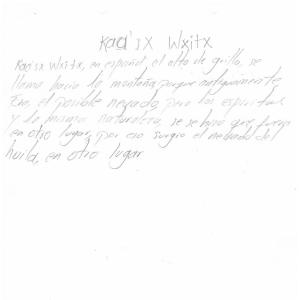 Kaa'sx Wxitx
Kaa'sx Wxitx, en español, el alto de grillo, se
llama hacia la montaña, porque antiguamente
Era, el posible nevado, pero los espiritus
y la misma naturaleza, se que fuera
en otro lugar, por eso surgio el nevado del
huila, en otro lugar